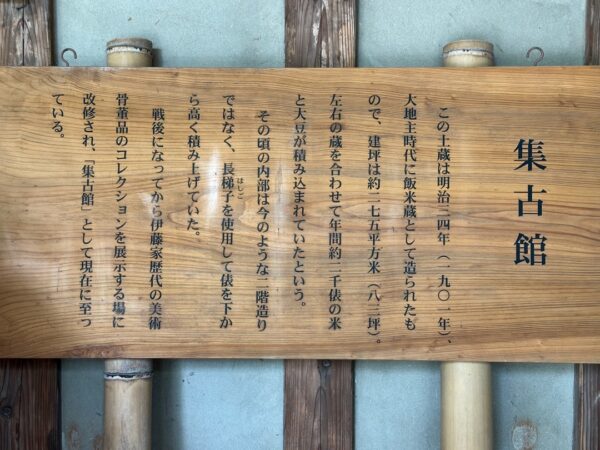 集古館
この土蔵は明治三四年（一九〇一年）、
大地主時代に飯米蔵として造られたも
ので、建坪は約二七五平方米（八二坪）。
左右の蔵を合わせて年間約二千俵の米
と大豆が積み込まれていたという。
その頃の内部は今のような二階造り
ではなく、長梯子を使用して俵を下か
はしご
ら高く積み上げていた。
戦後になってから伊藤家歴代の美術
骨董品のコレクションを展示する場に
改修され、「集古館」として現在に至っ
ている。